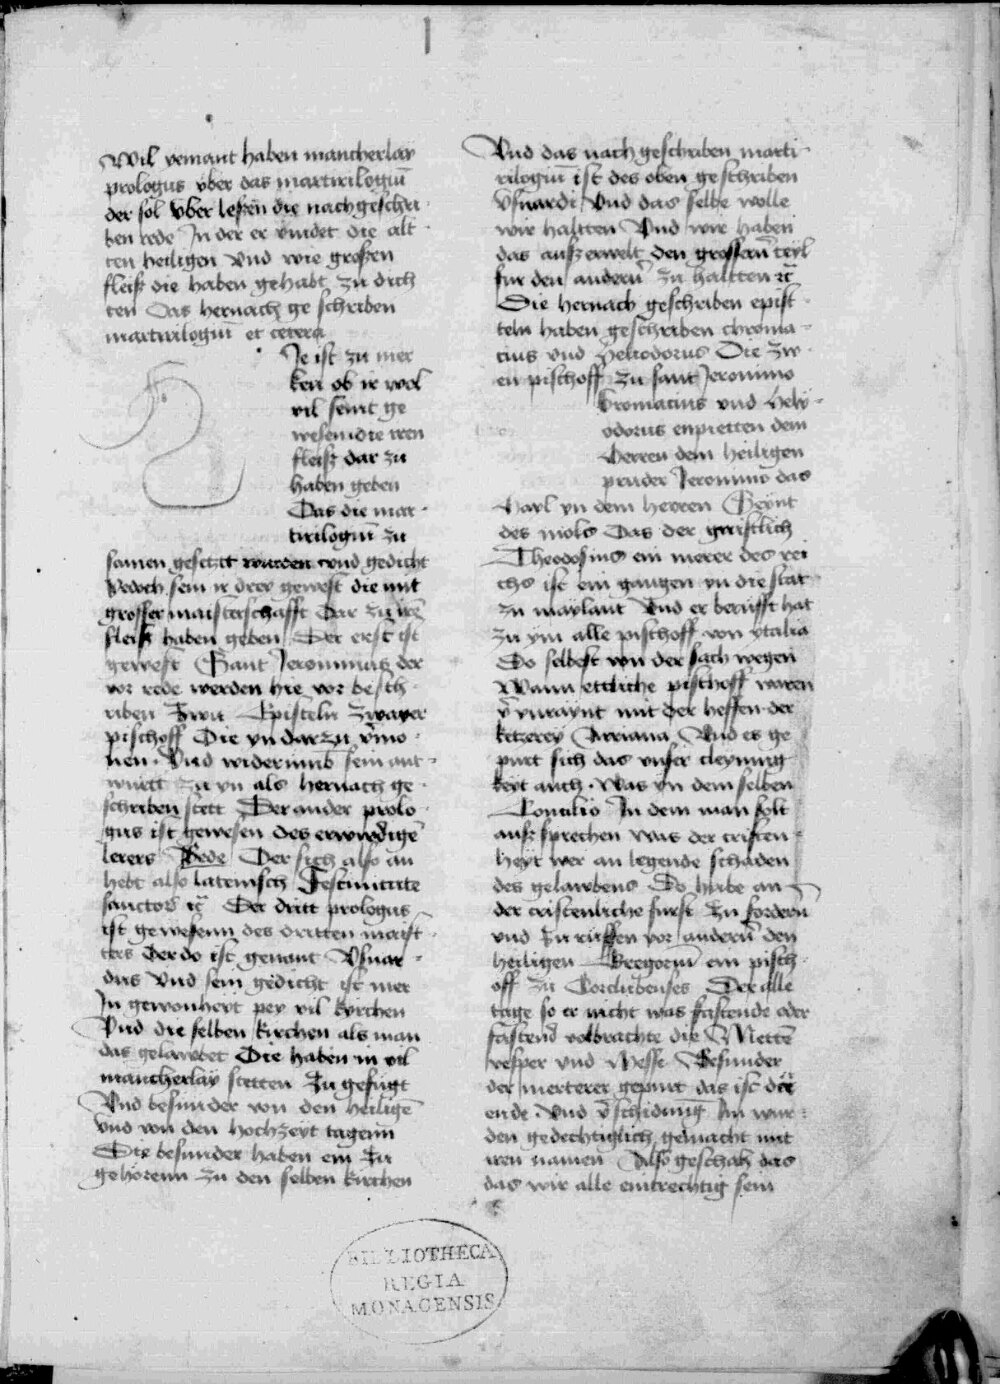 Wil yemant haben mancherlay
prologus vber das martirilogiu͞
der sol vber leßen die nachgeschri
ben rede In der er vindet die alt
ten heiligen Vnd wie großen
fleiß die haben gehabt zu dich
ten Das hernach ge schriben
martirilogiu͞ et cetera
Je ist zu mer
ken ob ir wol
vil seint ge
wesen die iren
fleiß dar zu
haben geben
Das die mar
tirilogiu͞ zu
samen gesetzt wurden vnd gedicht
Yedoch sein ir drey gewest die mit
grosser maisterschafft Dar zu ire͞
fleiß haben geben Der erst ist
gewest Sant Jeronimus der
vor rede werden hie vor besch
riben Zwu Episteln zwayer
pischoff Die yn darzu v̄mo
nen Vnd widerumb sein ant
wurtt zu yn als hernach ge
schriben stett Der ander prolo
gus ist gewesen des erwirdige͞
lerers Bede Der sich also an
hebt also lateinisch Festiuitate
sanctor͞ ꝛc͞ Der dritt prologus
ist gewesenn des dritten maist
ters Der do ist genant Vsuar
dus Vnd sein gedicht ist mer
In gewonheyt pey vil kyrchen
Vnd die selben kirchen als man
das gelawbet Die haben in vil
mancherlay stetten zu gefugt
Vnd besunder von den heilige͞
Vnd von den hochzeyt tagenn
Die besunder haben ein zu
gehorenn zu den selben kirchen
Vnd das nach geschriben marti
rilogiu͞ ist des oben geschriben
Vsuardi Vnd das selbe wolle
wir haltten Vnd wir haben
das außerwelt den grossern͞ teyl
fur den andern͞ zu haltten ꝛc͞
Die hernach geschriben epist
teln haben geschriben chroma
cius vnd Heliodorus Die zw
en pischoff zu sant Jeronimo
Cromacius vnd Hely
odorus enpietten dem
Herren dem heiligen
pruder Jeronimo das
hayl yn dem herren Seynt
des mols Das der geistlich
Theodosius ein merer des rei
chs ist ein gangen yn die stat
zu maylant Vnd er berufft hat
zu ym alle pischoff von ytalia
Do selbest von der sach wegen
Wann ettliche pischoff waren
v̄ vnraynt mit der heffen der
ketzerey Arriana Vnd es ge
purt sich das vnser cleynmg
keyt auch Was yn dem selben
Concilio In dem man solt
auß sprechen was der cristen
heyt wer an legende schaden
des gelawbens Do hube an
der cristenliche furst zu fordern͞
vnd zu ruffen vor andern͞ den
heiligen Gregoriu͞ ein pisch
off zu Cordubenses Der alle
tage so er nicht was fastende oder
fastend volbrachte die Metten͞
vesper vnd Messe Besunder
der merterer gepurt das ist der
ende Vnd v̄schidung͞ In wur
den gedechtiglich gemacht mit
iren namen Also geschah das
das wir alle eintrechtig sein
BIBLIOTHECA
REGIA
MONACENSIS